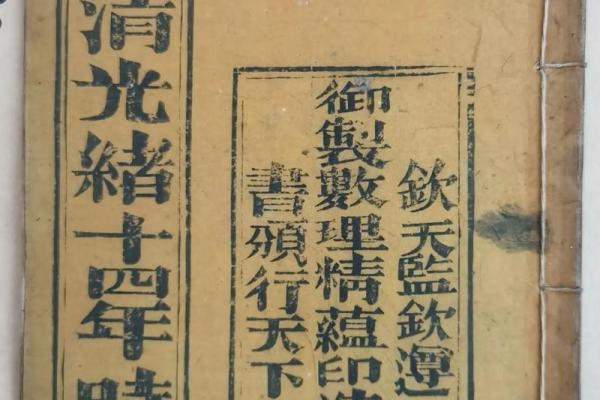 欽天監欽遵
御製數理精蘊印造
書頒行天下
清光緒十四年時